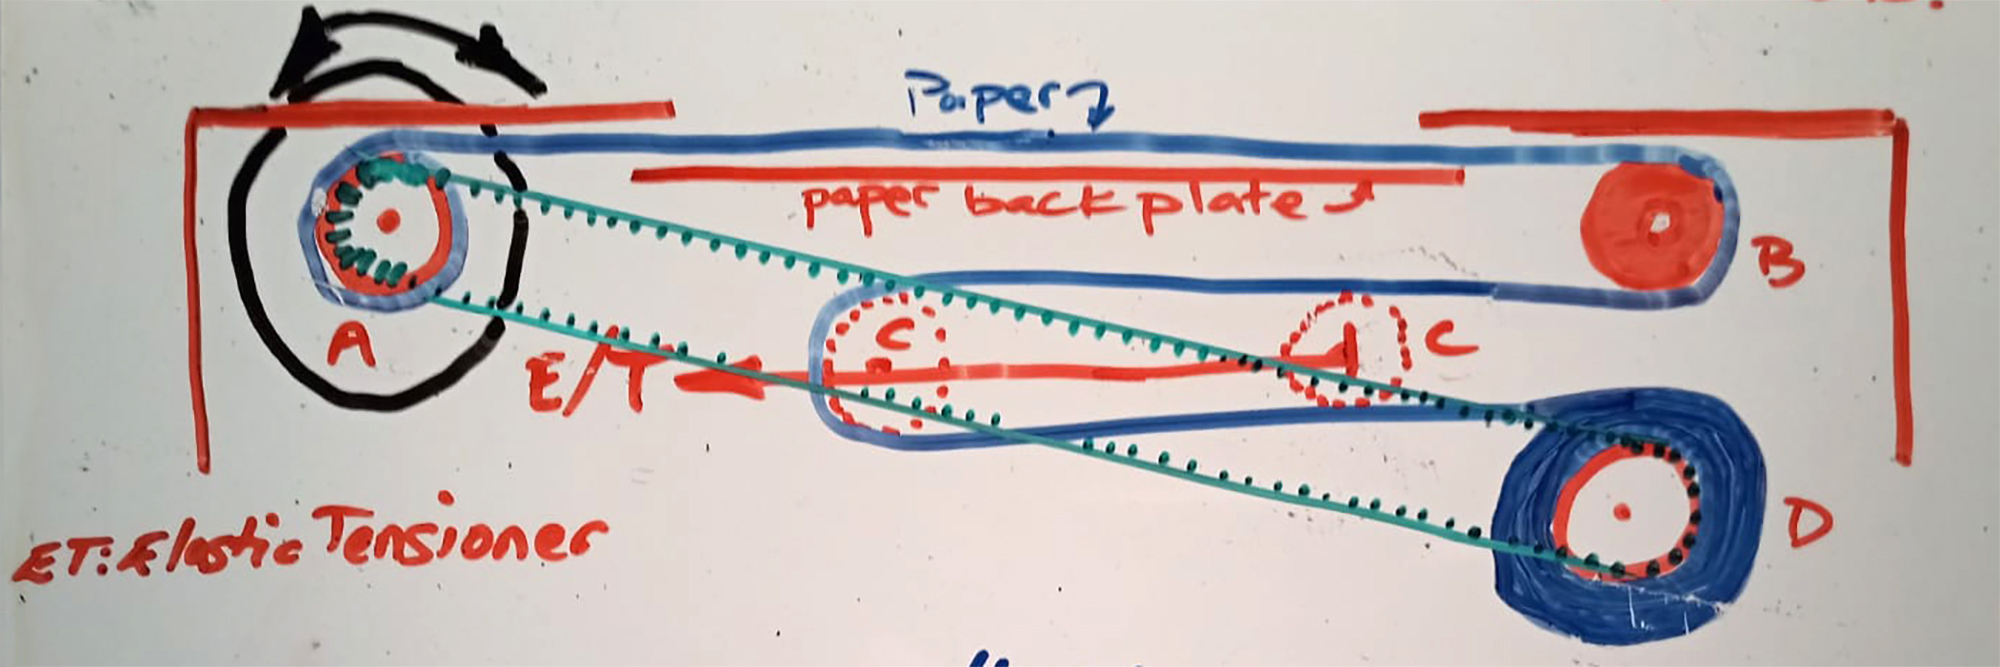 Paper
paper back plate
B
A
C
C
E/T
D
ET: Elastic Tensioner